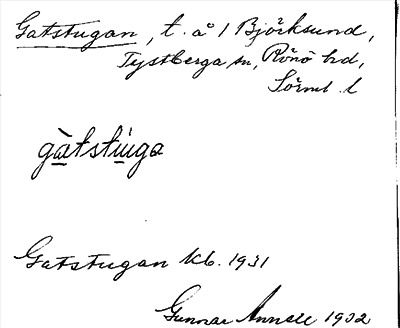 Gatstugan, t. å 1 Björksund,
Tystberga sn, Rönö hd,
Sörml. l
gàtstuga
Gatstugan kb. 1931
Gunnar Annell 1932